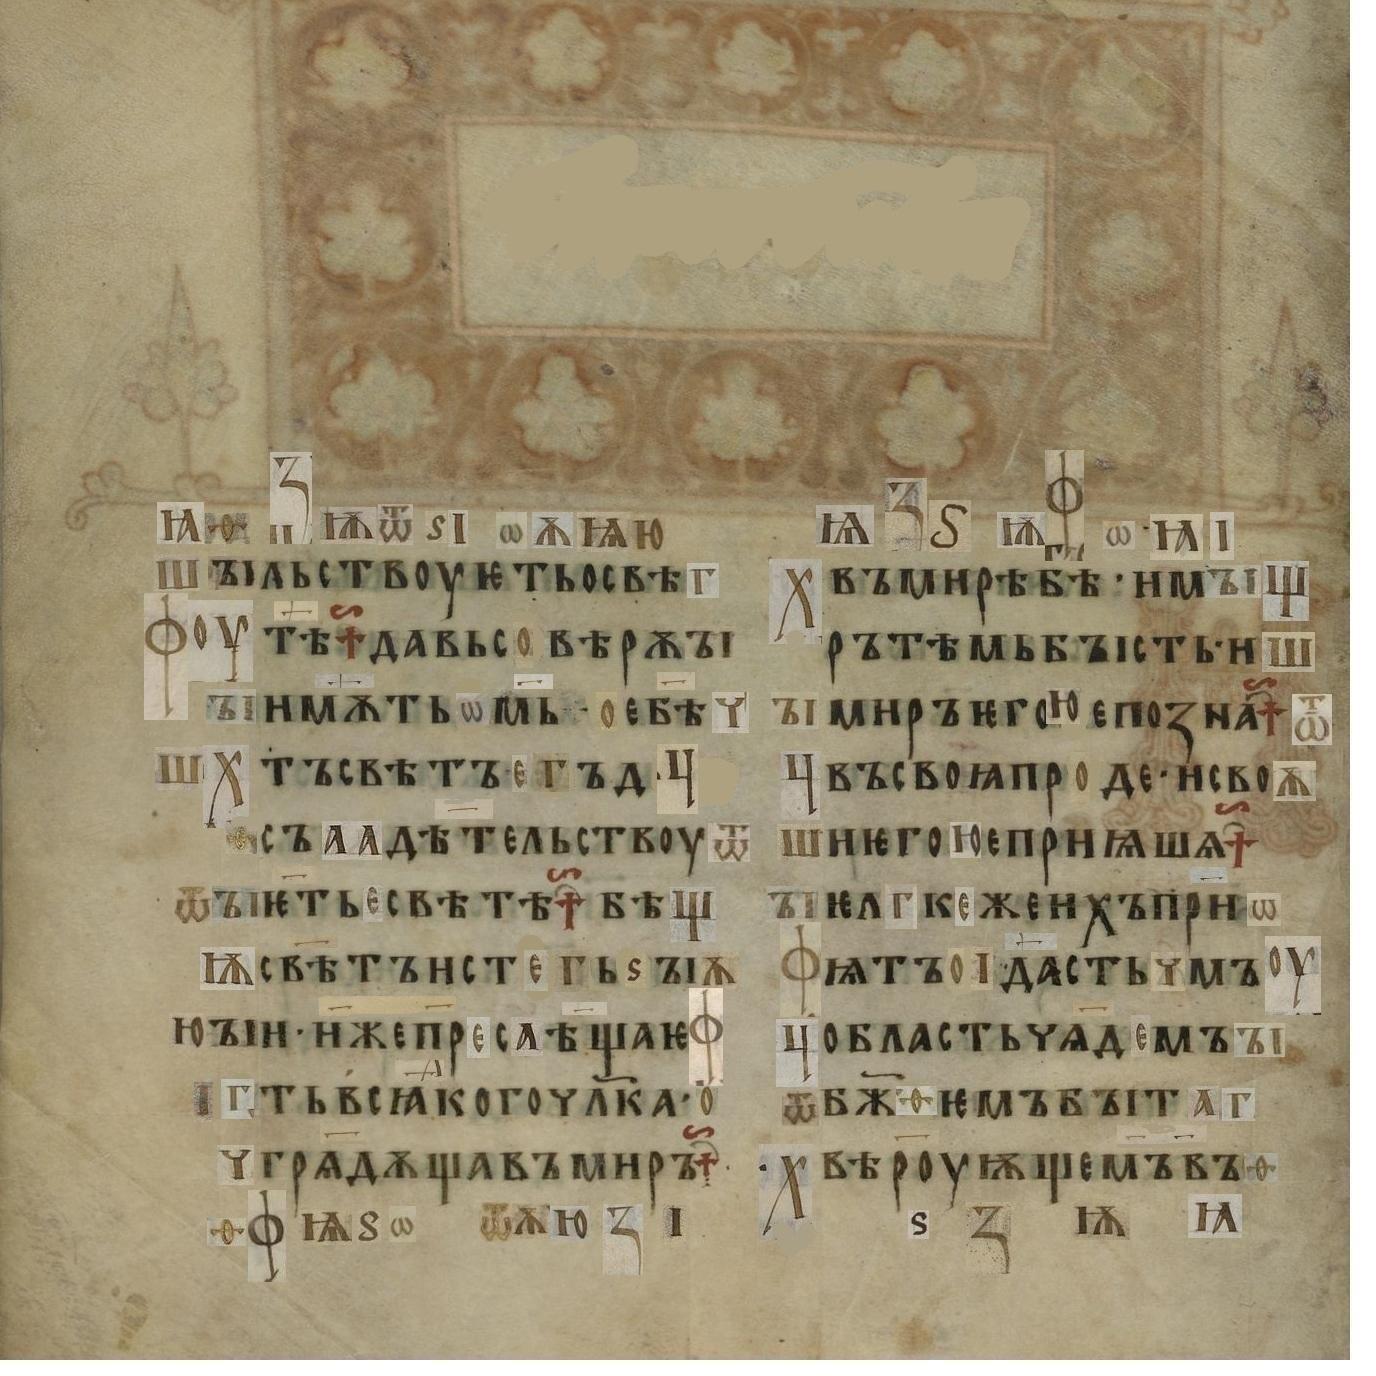 ꙗ ѳ З п ѭ ѿ ѕ і ѡ ѫ ѩ ю
шъільствоуѥтьосвѣг
Фоутѣдавьсовѣрѫъі
ъінмѫтьѡмь·оебѣу
шхтъсвѣтъегъд·ч
ѳсъаадѣтельствоуѿ
ѿъіѥтьесвѣтѣбѣщ
ѭсвѣтънстегьѕъіѫ
юъін·нжепресаѣщаюф
ігтьвсꙗкогоулка·о
уградѫщавъмнръ
ѳ ф ѭ ѕ ѡ ѿ ѫ ю З і
ѩ З ѕ ѭ ф ѡ · ꙗ і
хвъмнрѣбѣ·нмъіщ
рътѣмьбъість·нш
ъімнръѥгоюепознаѿ
чвъсвоꙗпроде·нсвоѫ
шнѥгоюепрнѩшѧ
ъіѥлгкеженхъпрнѡ
фѩтъоідастьумъоу
чобластьуѧдемъъі
ѿбжѳѥмъбъітаг
·хвѣроуѭщемъвъѳ
ѕ З ѭ ꙗ